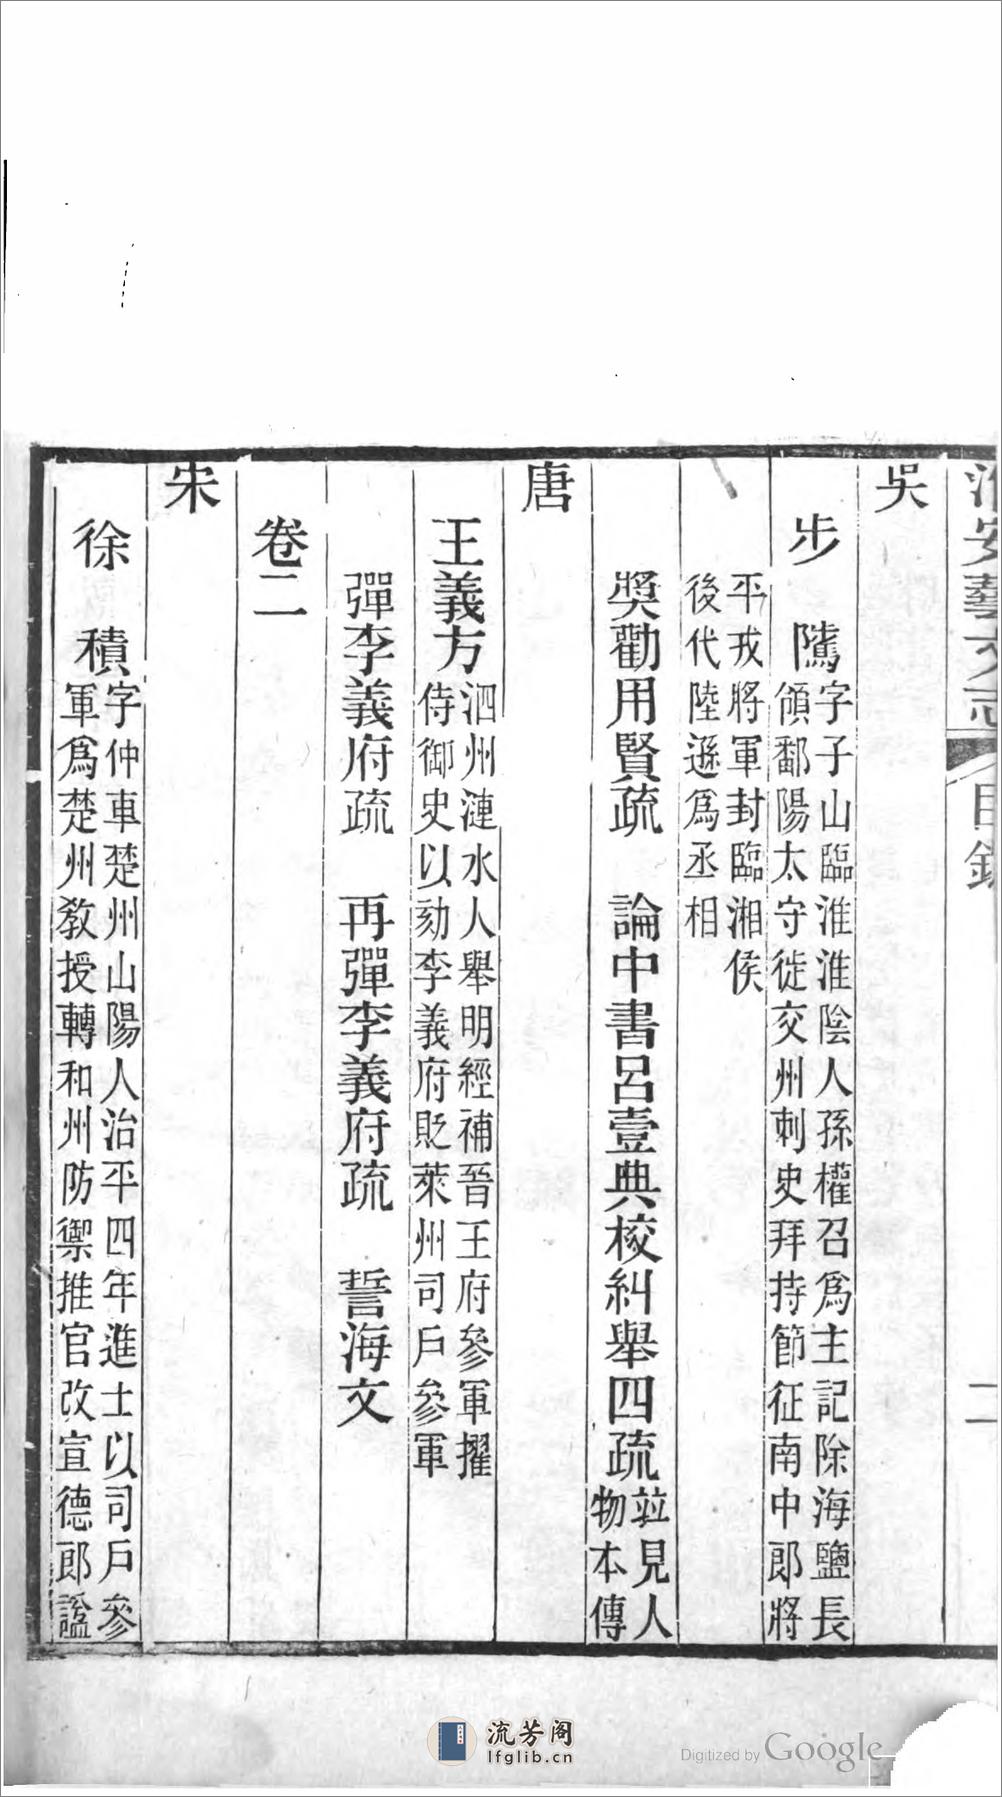 淮安藝文志 目錄 二
吳
步 騭 字子山臨淮淮陰人孫權召爲主記除海鹽長
領鄱陽太守徙交州刺史拜持節征南中郎將
平戎將軍封臨湘侯
後代陸遜爲丞相
奬勸用賢疏 論中書呂壹典校糾舉四疏 竝見人
物本傳
唐
王義方 泗州漣水人舉明經補晉王府參軍擢
侍御史以劾李義府貶萊州司戶參軍
彈李義府疏 再彈李義府疏 誓海文
卷二
宋
徐 積 字仲車楚州山陽人治平四年進士以司戶參
軍爲楚州敎授轉和州防禦推官改宣德郎謚
流芳阁
lfglib.cn
Digitized by Google